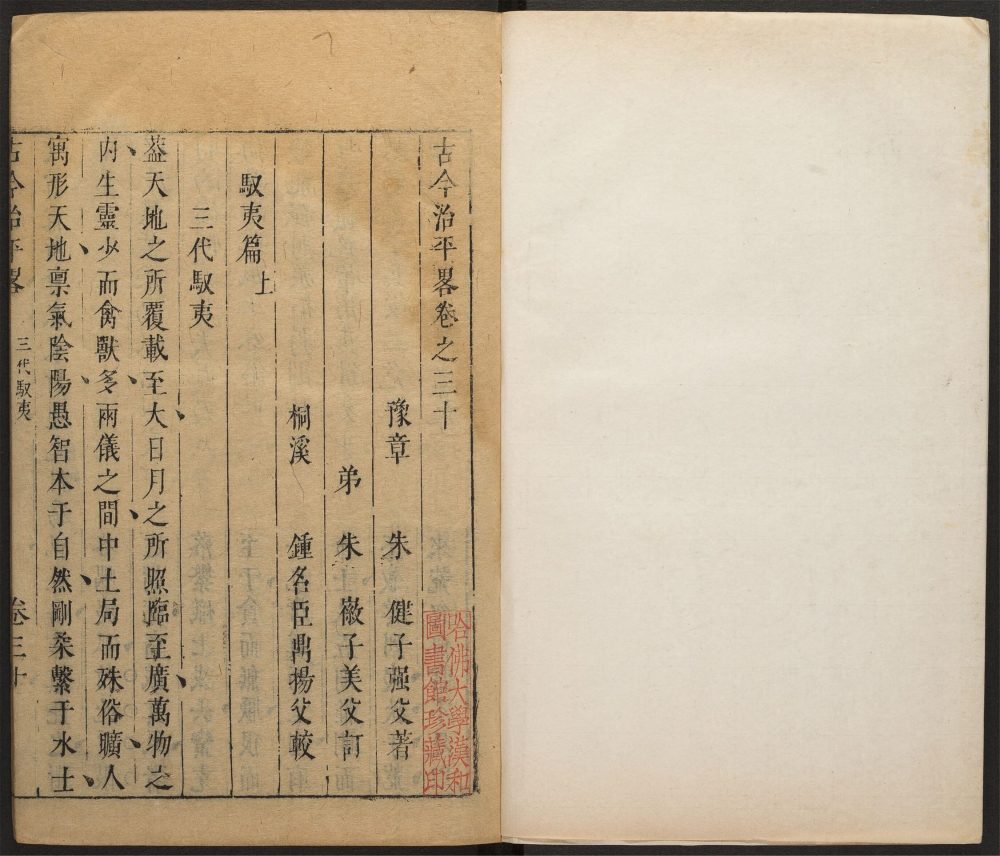 古今治平畧卷之三十
豫章 朱 健子强父著
弟 朱 徽子美父訂
桐溪 鍾名臣鼎揚父較
馭夷篇上
三代馭夷
葢天地之所覆載至大日月之所照臨至廣萬物之
内生靈少而禽獸多兩儀之間中土局而殊俗曠人
寓形天地禀氣陰陽愚智本于自然剛柔繫于水土
古今治平畧 三代馭夷 卷三十
哈佛大學漢和
圖書館珍藏印